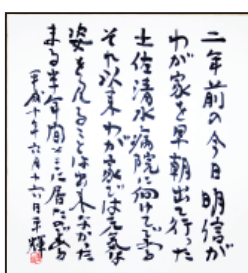 二年前の今日明信が
わが家を早朝出て行った
土佐清水病院に向けてである
それ以来わが家では元気な
姿を見ることは出来なかった
まる半年間そこに居たのである
平成十年六月十六日末輝